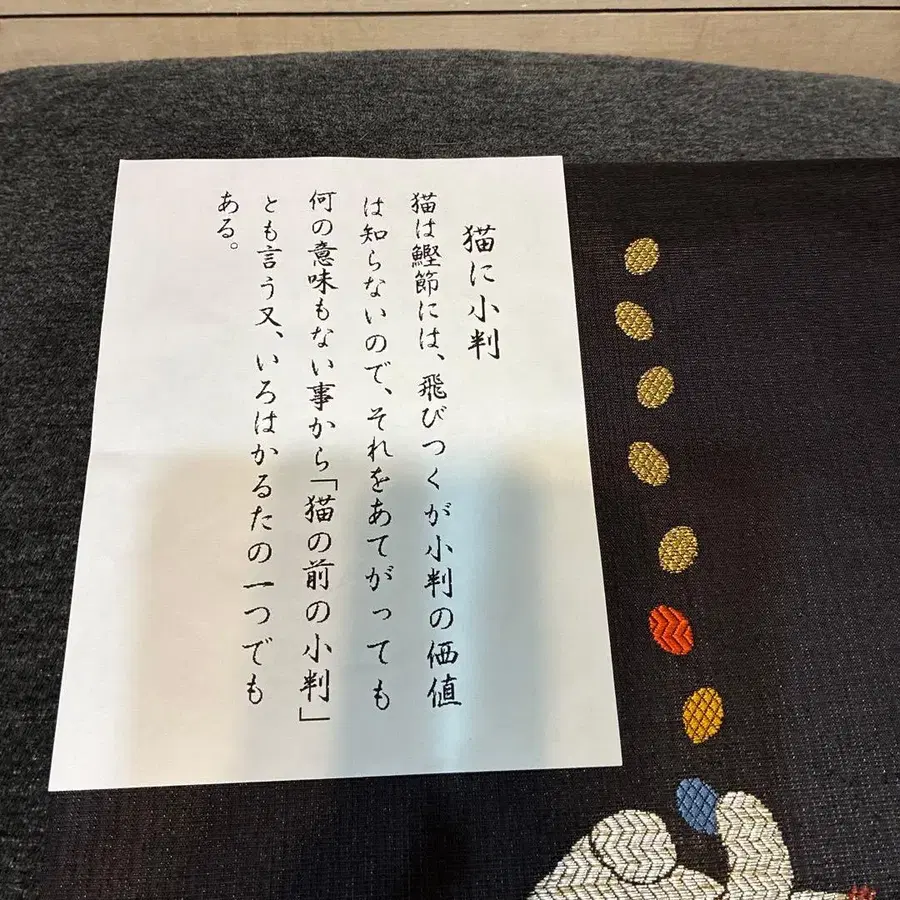 猫に小判
猫は鰹節には、飛びつくが小判の価値
は知らないので、それをあてがっても
何の意味もない事から「猫の前の小判」
とも言う又、いろはかるたの一つでも
ある。